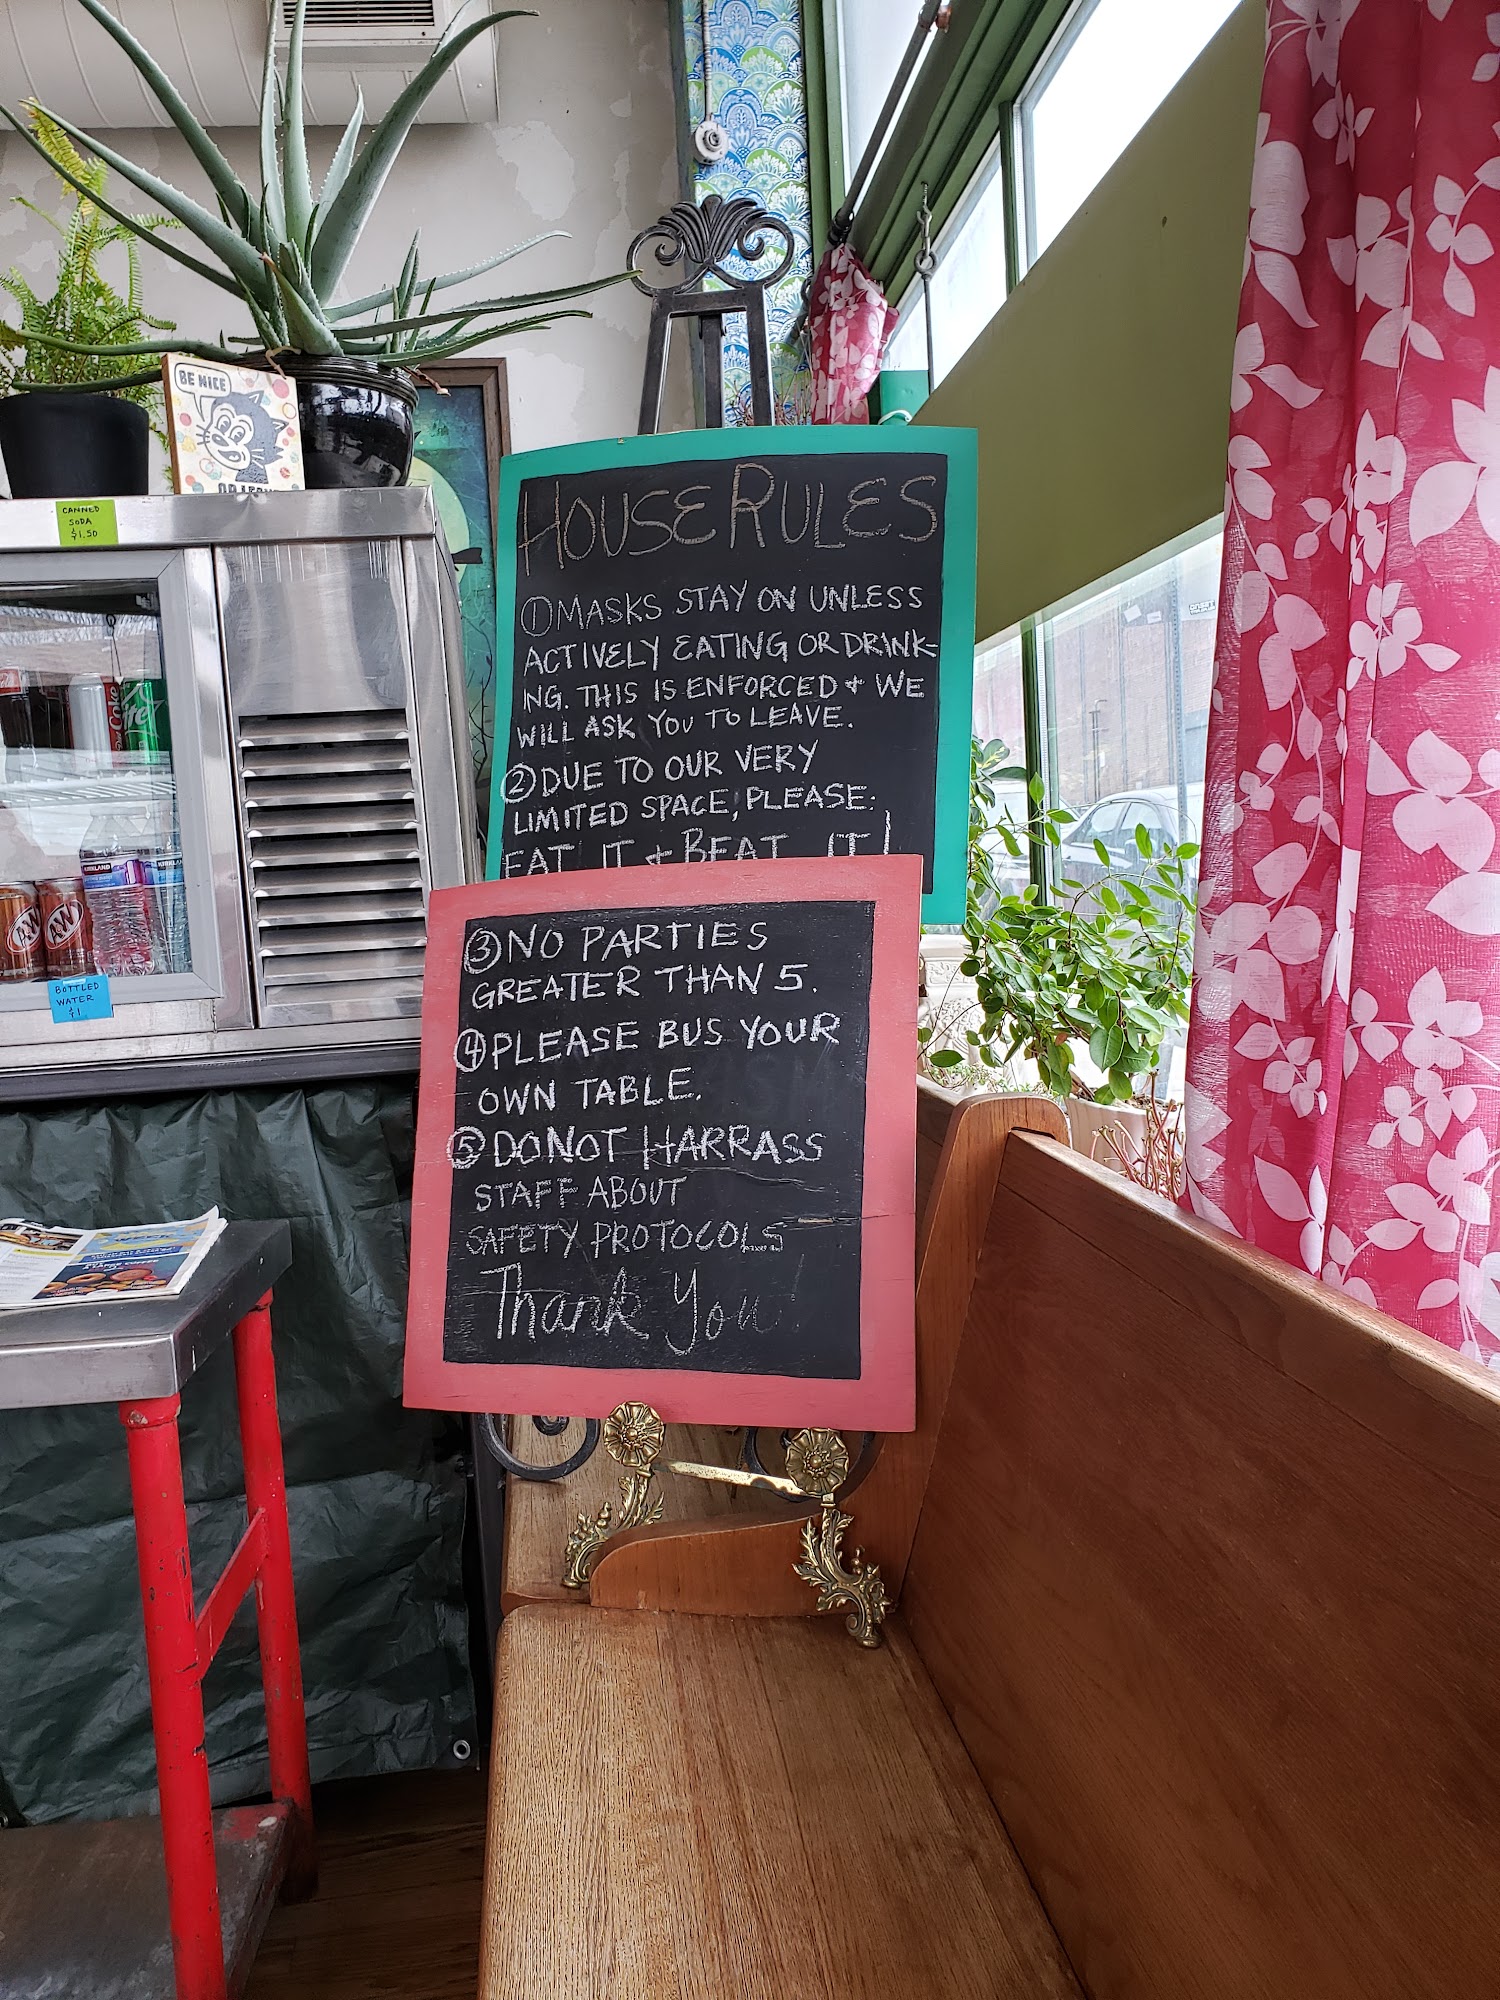 BE NICE
CANNED
SODA
$1.50
HOUSE RULES
① MASKS STAY ON UNLESS
ACTIVELY EATING OR DRINK-
ING. THIS IS ENFORCED + WE
WILL ASK YOU TO LEAVE.
② DUE TO OUR VERY
LIMITED SPACE, PLEASE:
EAT IT + BEAT IT!
③ NO PARTIES
GREATER THAN 5.
④ PLEASE BUS YOUR
OWN TABLE.
⑤ DO NOT HARRASS
STAFF ABOUT
SAFETY PROTOCOLS
Thank You!
Coke
KIRKLAND
KIRKLAND
A&W
A&W
BOTTLED
WATER
$1